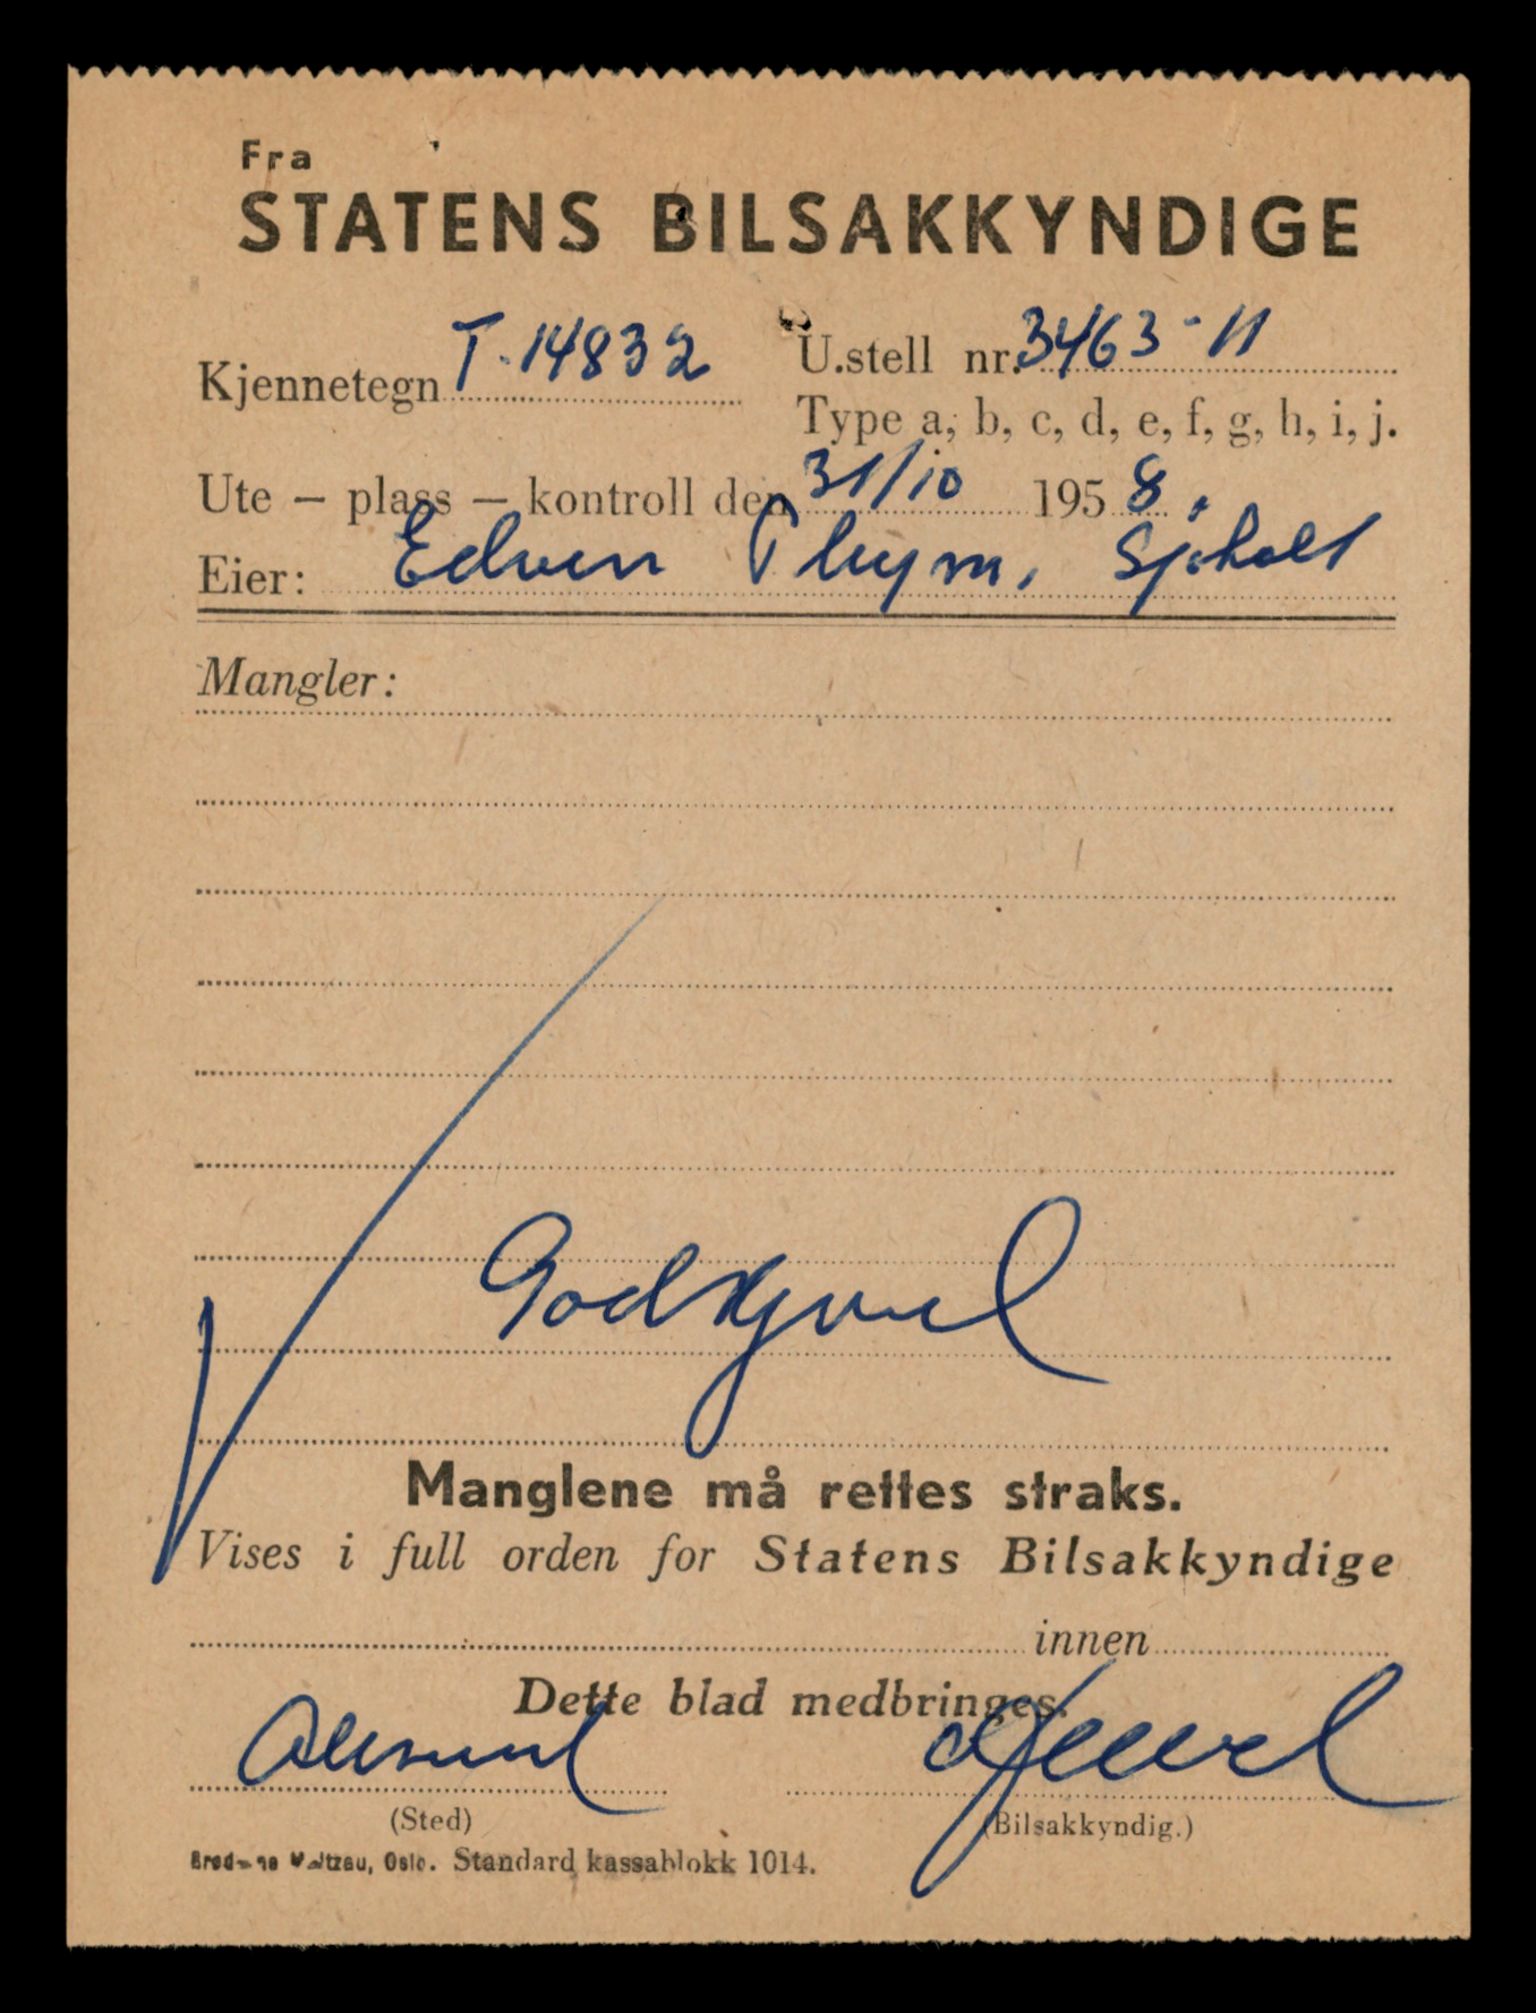 Fra
STATENS BILSAKKYNDIGE
Kjennetegn T-14832 U.stell nr. 3463-11
Type a, b, c, d, e, f, g, h, i, j.
Ute — plass — kontroll den 31/10 1958.
Eier: Edven Sjøholt
Mangler:
Godkjend
Manglene må rettes straks.
Vises i full orden for Statens Bilsakkyndige
innen
Dette blad medbringes.
Ålesund
(Sted) (Bilsakkyndig.)
Oslo. Standard kassablokk 1014.